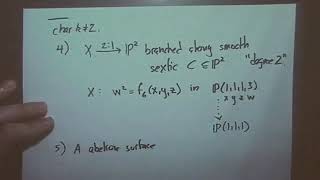 char k≠2.
4) X →2:1 P² branched along smooth
sextic C ⊆ P² "degree 2"
X: w² = f₆(x,y,z) in P(1,1,1,3)
x y z w
P(1,1,1)
5) A abelian surface